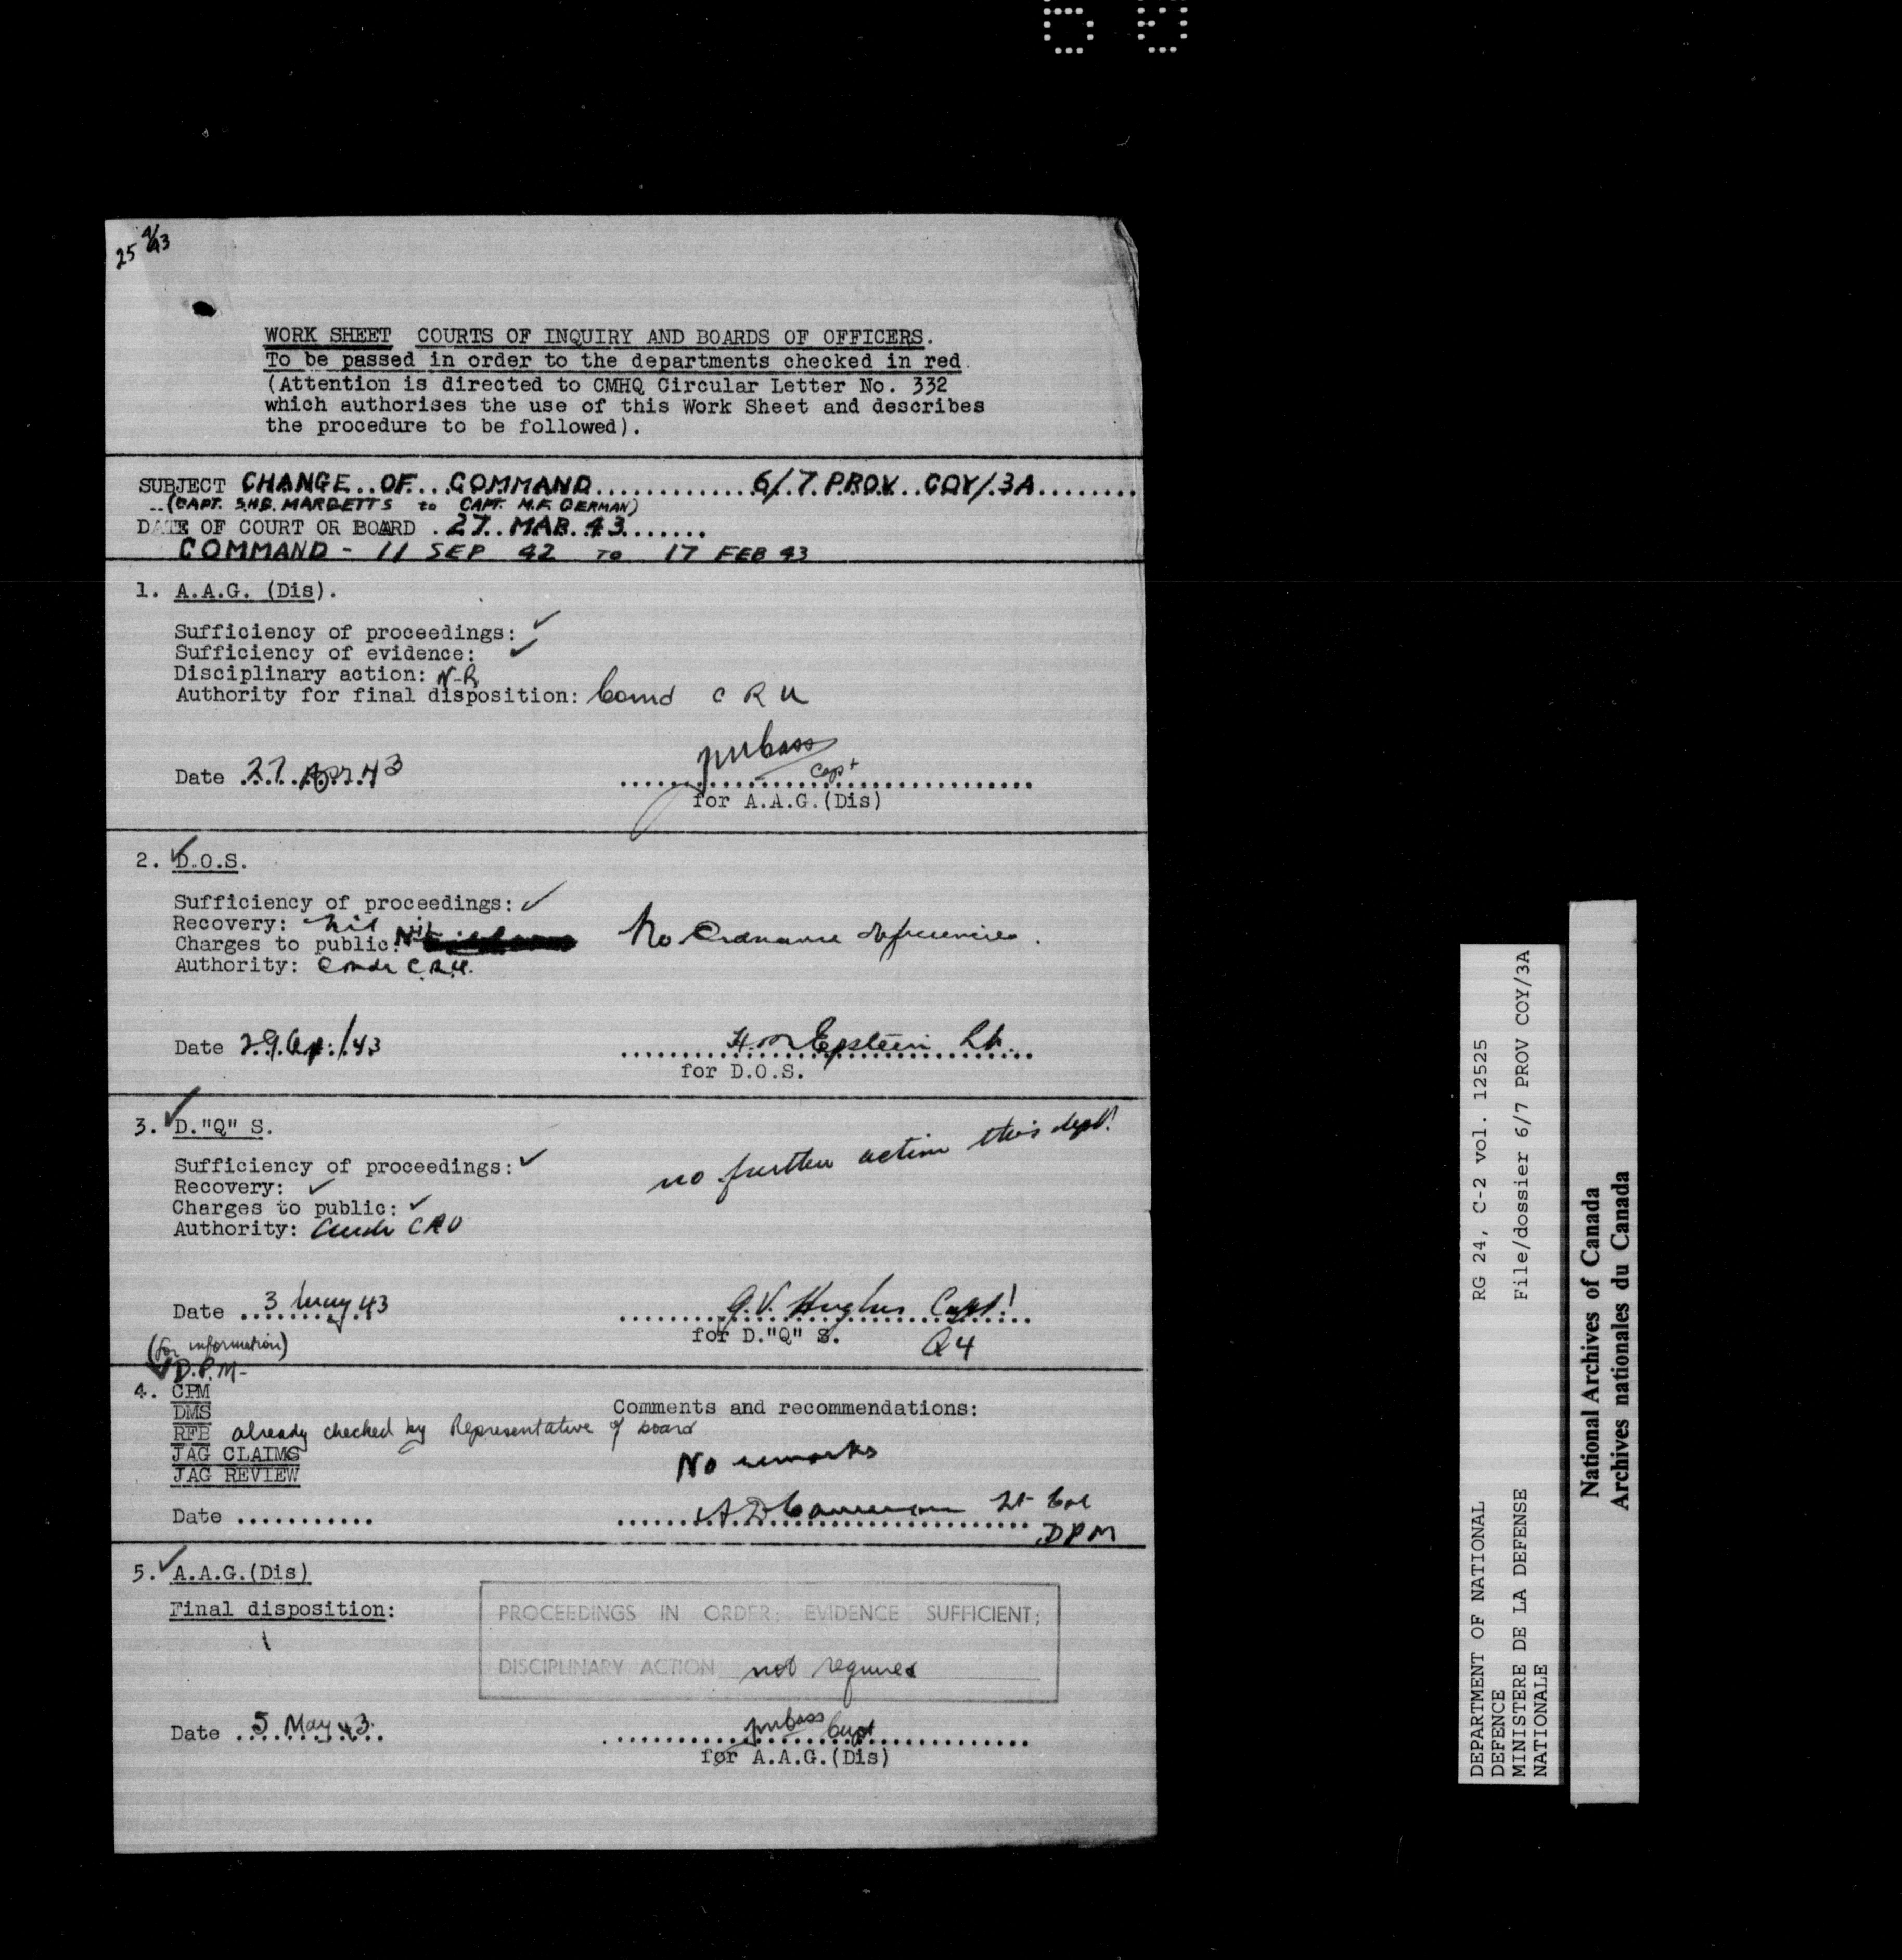 25 4/43
WORK SHEET COURTS OF INQUIRY AND BOARDS OF OFFICERS.
To be passed in order to the departments checked in red.
(Attention is directed to CMHQ Circular Letter No. 332
which authorises the use of this Work Sheet and describes
the procedure to be followed).
SUBJECT CHANGE OF COMMAND 6/7 PROV COY/3A
(CAPT. S.H.B. MARGETTS to CAPT. M.F. GERMAN)
DATE OF COURT OR BOARD . 27 MAR 43
COMMAND - 11 SEP 42 TO 17 FEB 43
1. A.A.G. (Dis).
Sufficiency of proceedings: ✓
Sufficiency of evidence: ✓
Disciplinary action: N-R
Authority for final disposition: Comd C R U
Capt
Date 27 Apr 43
for A.A.G.(Dis)
2. ✓ D.O.S.
Sufficiency of proceedings: ✓
Recovery: nil
Charges to public: Nil
No Ordnance deficiencies.
Authority: Comdr C.R.U.
Date 29 Ap. /43 Epstein Lt.
for D.O.S.
3. ✓ D."Q" S.
no further action this dept.
Sufficiency of proceedings: ✓
Recovery: ✓
Charges to public: ✓
Authority: Comdr CRU
Date 3 May 43 G.V. Hughes Capt.
for D."Q" S. Q4
(for information)
✓ D.P.M-
4. CPM
DMS
Comments and recommendations:
RFB already checked by Representative of board
JAG CLAIMS
No remarks
JAG REVIEW
Date A D Cameron Lt Col
DPM
5. ✓ A.A.G.(Dis)
Final disposition:
PROCEEDINGS IN ORDER: EVIDENCE SUFFICIENT;
DISCIPLINARY ACTION not required
Date 5 May 43 Capt
for A.A.G.(Dis)
DEPARTMENT OF NATIONAL RG 24, C-2 vol. 12525
DEFENCE
MINISTERE DE LA DEFENSE File/dossier 6/7 PROV COY/3A
NATIONALE
National Archives of Canada
Archives nationales du Canada